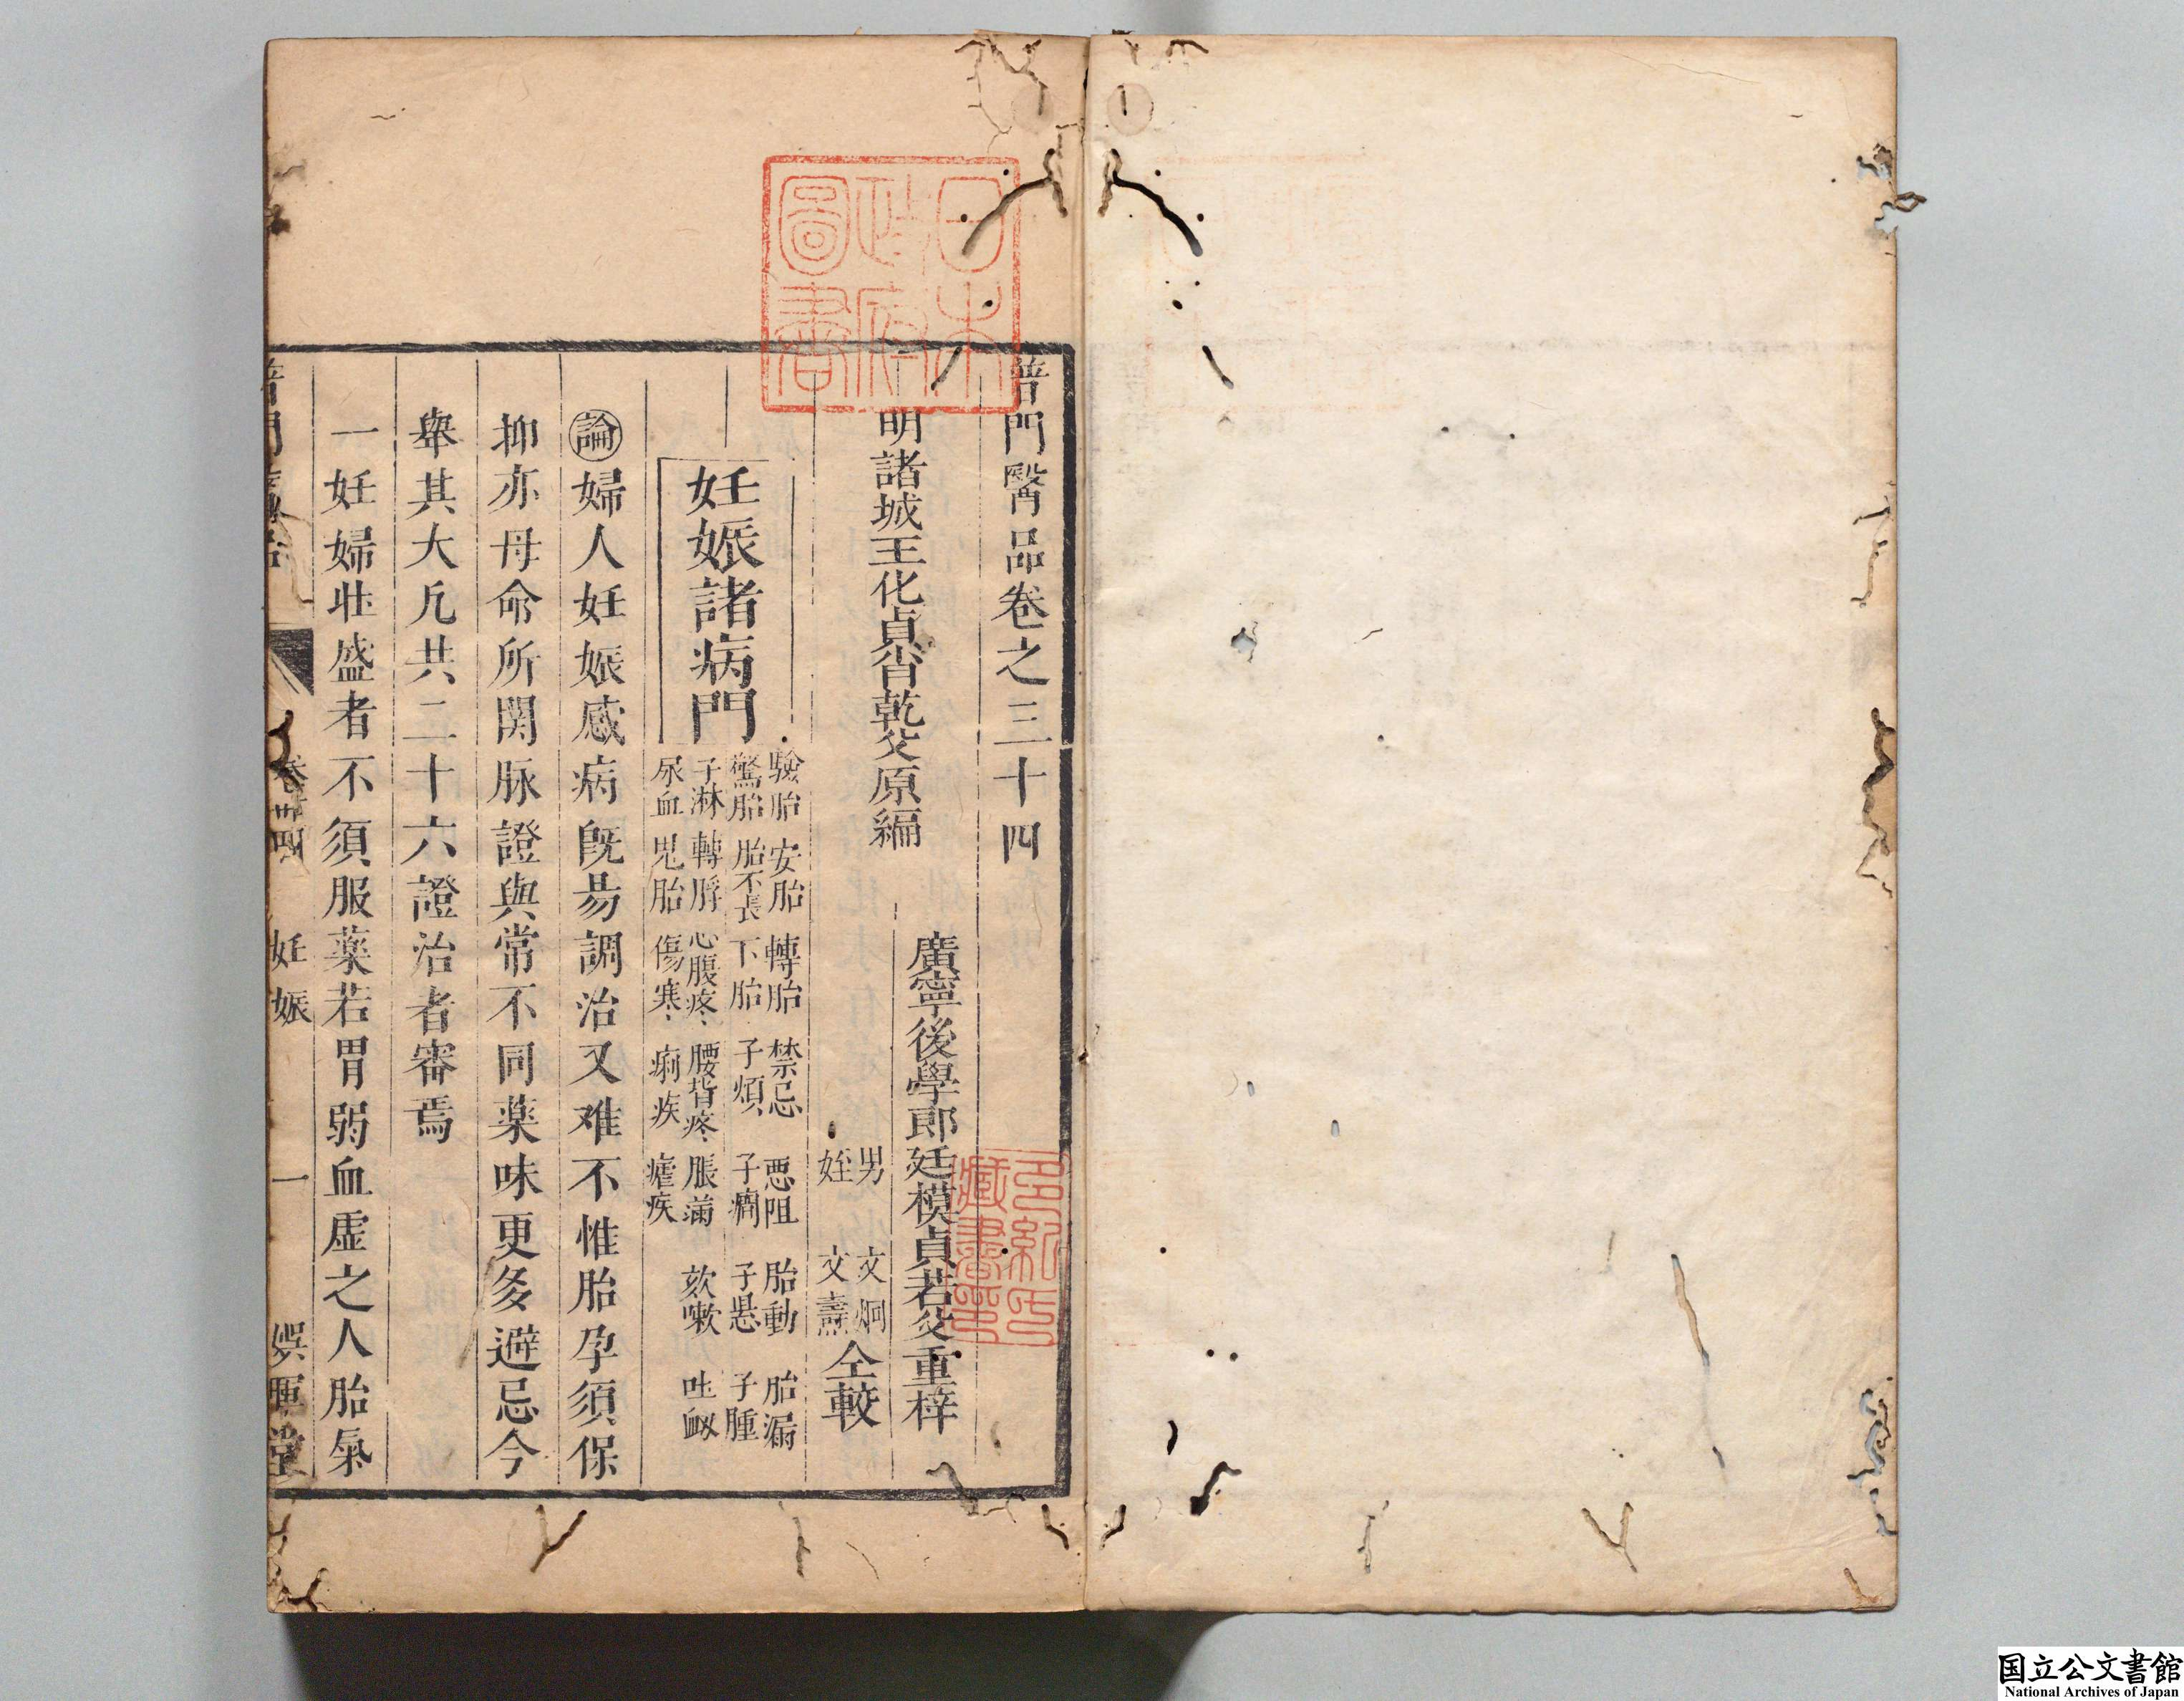 普門醫品卷之三十四
明諸城王化貞肖乾父原編
廣寧後學郎廷模貞若父重梓
男 文炯
姪 文燾
仝較
妊娠諸病門
驗胎 安胎 轉胎 禁忌 惡阻 胎動 胎漏
驚胎 胎不長 下胎 子煩 子癇 子懸 子腫
子淋 轉脬 心腹疼 腰背疼 脹滿 欬嗽 吐衂
尿血 鬼胎 傷寒 痢疾 瘧疾
論婦人妊娠感病旣易調治又难不惟胎孕須保
抑亦母命所関脉證與常不同藥味更多避忌今
舉其大凡共二十六證治者審焉
一妊婦壯盛者不須服藥若胃弱血虛之人胎氣
卷卅四 妊娠 一 娯暉堂
日本政府圖書
多紀氏藏書印
国立公文書館
National Archives of Japan